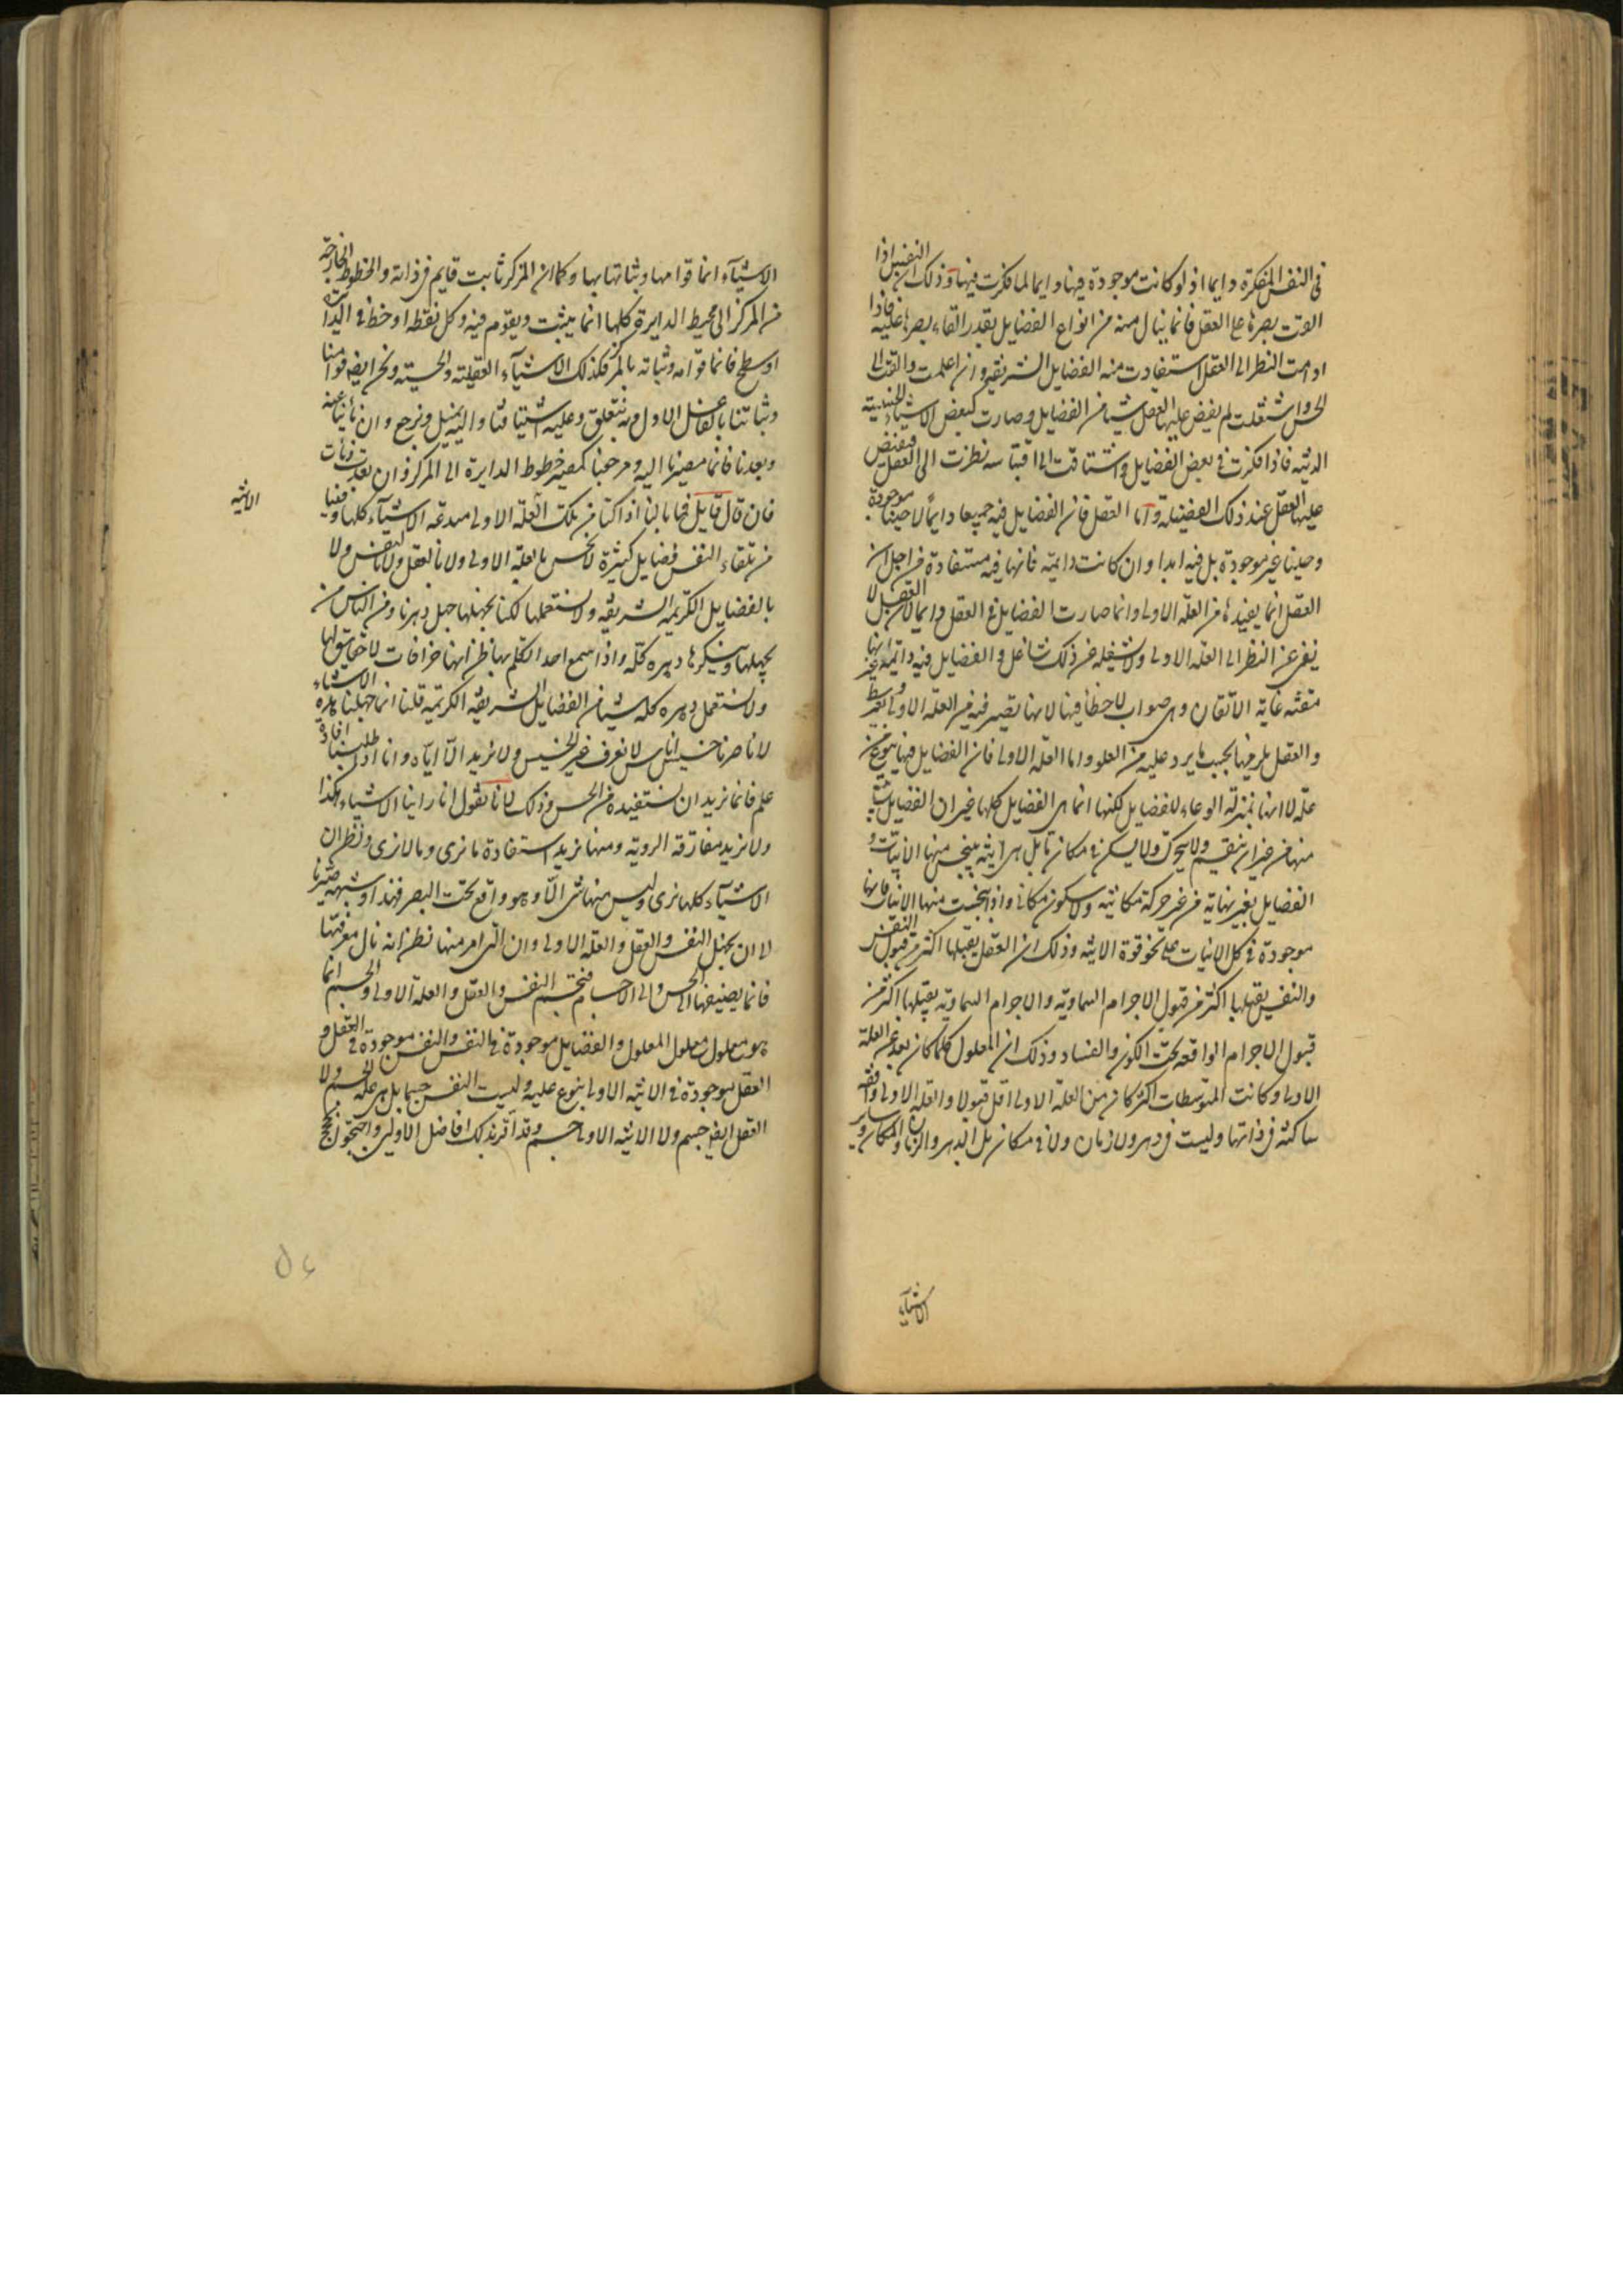 فى النفس المفكرة دايما اذ لو كانت موجودة فيها دايما لما فكرت فيها وذلك ان النفس اذا
القت بصرها على العقل فانما ينال منه من انواع الفضايل بقدر القاء بصرها عليه فاذا
ادامت النظر الى العقل استفادت منه الفضايل الشريفة وان اعلمت والتفت الى
الحس واشتغلت لم يفض عليها العقل شيئا من الفضايل وصارت كبعض الاشياء الحسية
الدنية فاذا فكرت فى بعض الفضايل واشتاقت الى اقتباسه نظرت الى العقل فيفيض
عليها العقل عند ذلك الفضيلة واما العقل فان الفضايل فيه جميعا دايما لا حينا موجودة
وحينا غير موجودة بل فيه ابدا وان كانت دايمة فانها فيه مستفادة من اجل ان
العقل انما يفيدها من العلة الاولى وانما صارت الفضايل فى العقل دايما لان العقل لا
يفر عن النظر الى العلة الاولى ولا شغله عن ذلك شاغل والفضايل فيه دايمة غير انها
متقنة غاية الاتقان وهى صواب لا خطأ فيها لانها تصير فيه من العلة الاولى بغير وسط
والعقل يلزمها بحسب ما يرد عليه من العلو واما العلة الاولى فان الفضايل فيها بنوع
علة لا انها بمنزلة الوعاء للفضايل لكنها انما هى الفضايل كلها غير ان الفضايل
منها من غير ان ينقسم ولا يتحرك ولا يسكن فى مكان ما بل هى انية ينبجس منها الانيات و
الفضايل بغير نهاية من غير حركة مكانية ولا سكون مكانى واذا انبجست منها الانيات فانها
موجودة فى كل الانيات على نحو قوة الانية وذلك ان العقل يقبلها اكثر من قبول النفس
والنفس يقبلها اكثر من قبول الاجرام السماوية والاجرام السماوية يقبلها اكثر من
قبول الاجرام الواقعة تحت الكون والفساد وذلك ان المعلول كلما كان بعد عن العلة
الاولى وكانت المتوسطات اكثر كان من العلة الاولى اقل قبولا والعلة الاولى واقفة
ساكنة فى ذاتها وليست فى دهر ولا زمان ولا فى مكان بل الدهر والزمان والمكان وساير
الاشياء
الاشياء انما قوامها وثباتها بها وكما ان المركز ثابت قايم فى ذاته والخطوط الخارجة
من المركز الى محيط الدايرة كلها انما يثبت ويقوم فيه وكل نقطة او خط فى الدايرة
او سطح فانما قوامه وثباته بالمركز فكذلك الاشياء العقلية والحسية ونحن ايضا قوامنا
وثباتنا بالفاعل الاول وبه نتعلق وعليه اشتياقنا واليه نميل ونرجع وان نأينا عنه
وبعدنا فانما مصيرنا اليه ومرجعنا كمصير خطوط الدايرة الى المركز وان بعدت ونأت
فان قال قايل فما بالنا اذ اكنا من تلك العلة الاولى مبدعة الاشياء كلها وفينا
الانية
من تلقاء النفس فضايل كثيرة لا نحس بالعلة الاولى ولا بالعقل ولا بالنفس ولا
بالفضايل الكريمة الشريفة ولا نستعملها لكنا نجهلها جل دهرنا ومن الناس من
يجهلها وينكرها دهره كله واذا سمع احدا تكلم بها ظن انها خرافات لا حقايق لها
ولا نستعمل دهره كله شيئا من الفضايل الشريفة الكريمة قلنا انما جهلنا هذه الاشياء
لانا صرنا حسيين لا نعرف غير الحسيس ولا نريد الا اياه وانا اذا طلبنا افادة
علم فانما نريد ان نستفيده من الحس وذلك لانا نقول انا راينا الاشياء هكذا
ولا نريد مفارقة الروية ومنها نريد استفادة ما نرى وما لا نرى ونظن ان
الاشياء كلها نرى وليس منها شى الا وهو واقع تحت البصر فهذا وشبهه صيرنا
لا ان نجهل النفس والعقل والعلة الاولى وان التى امر منها نظن انه نال معرفتها
فانما يضيفها الى الحس والى الاجسام فيجسم النفس والعقل والعلة الاولى والجسم انما
هو معلول معلول المعلول والفضايل موجودة فى النفس والنفس موجودة فى العقل و
العقل موجودة فى الانية الاولى بنوع علية وليست النفس جسما بل هى علة الجسم ولا
العقل ايضا جسم ولا الانية الاولى جسم وقد اقر بذلك افاضل الاولين واحتجوا بحجج